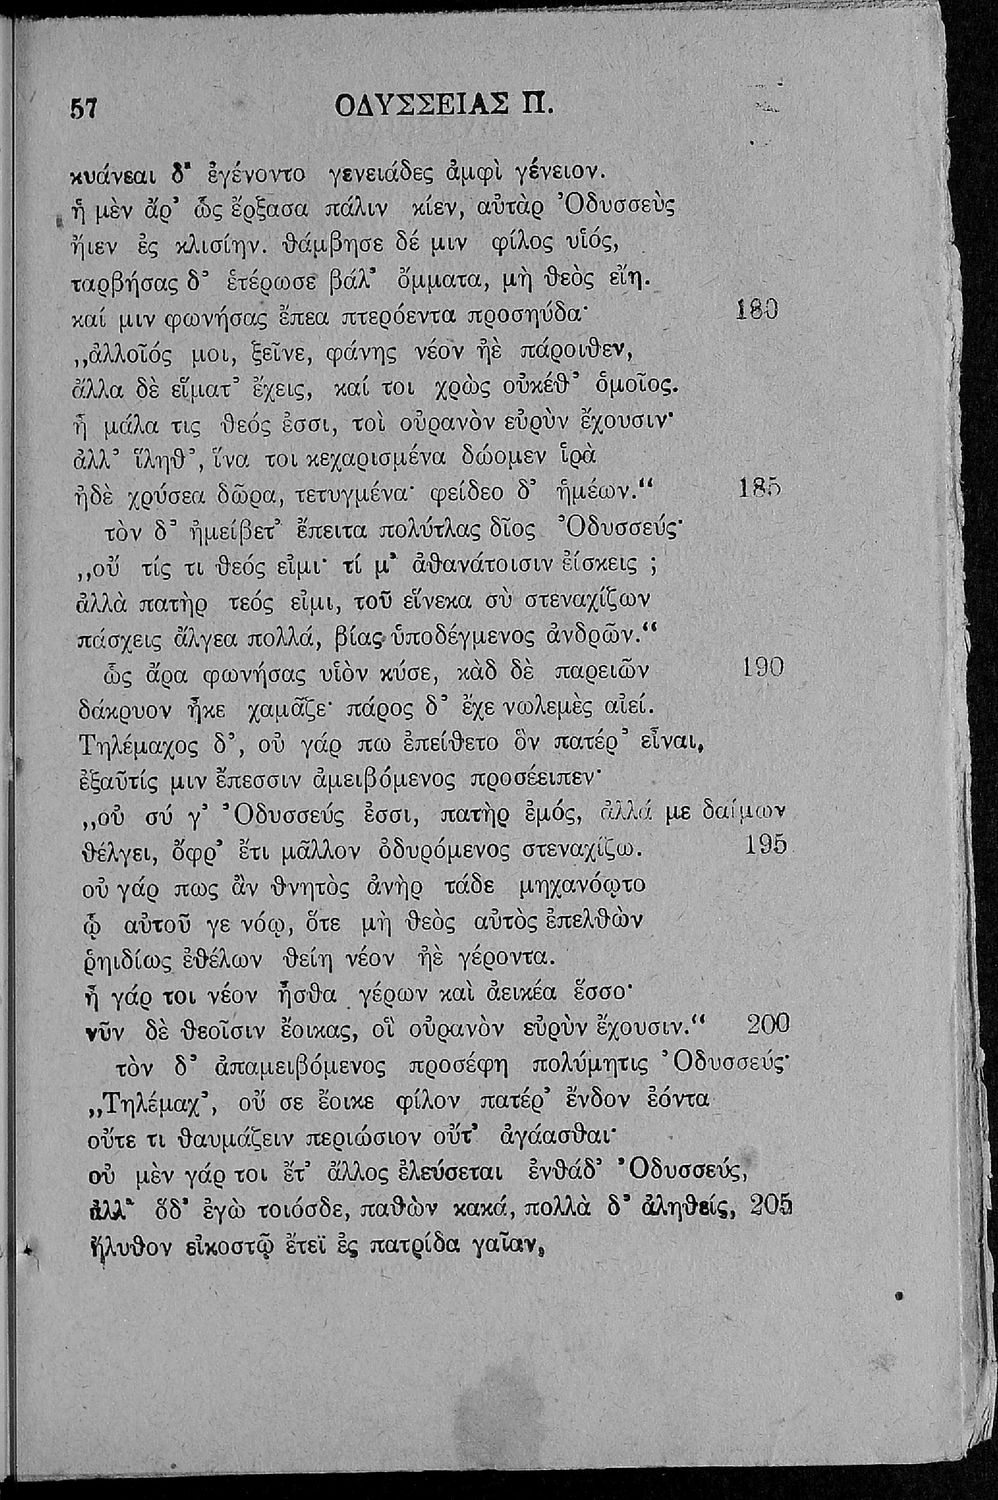 57 ΟΔΥΣΣΕΙΑΣ Π.
κυάνεαι δ' ἐγένοντο γενειάδες ἀμφὶ γένειον.
ἡ μὲν ἄρ' ὣς ἔρξασα πάλιν κίεν, αὐτὰρ Ὀδυσσεὺς
ἤιεν ἐς κλισίην. θάμβησε δέ μιν φίλος υἱός,
ταρβήσας δ' ἑτέρωσε βάλ' ὄμματα, μὴ θεὸς εἴη.
καί μιν φωνήσας ἔπεα πτερόεντα προσηύδα· 180
„ἀλλοῖός μοι, ξεῖνε, φάνης νέον ἠὲ πάροιθεν,
ἄλλα δὲ εἵματ' ἔχεις, καί τοι χρὼς οὐκέθ' ὁμοῖος.
ἦ μάλα τις θεός ἐσσι, τοὶ οὐρανὸν εὐρὺν ἔχουσιν·
ἀλλ' ἵληθ', ἵνα τοι κεχαρισμένα δώομεν ἱρὰ
ἠδὲ χρύσεα δῶρα, τετυγμένα· φείδεο δ' ἡμέων.“ 185
τὸν δ' ἠμείβετ' ἔπειτα πολύτλας δῖος Ὀδυσσεύς·
„οὔ τίς τι θεός εἰμι· τί μ' ἀθανάτοισιν ἐίσκεις ;
ἀλλὰ πατὴρ τεός εἰμι, τοῦ εἵνεκα σὺ στεναχίζων
πάσχεις ἄλγεα πολλά, βίας ὑποδέγμενος ἀνδρῶν.“
ὣς ἄρα φωνήσας υἱὸν κύσε, κὰδ δὲ παρειῶν 190
δάκρυον ἧκε χαμᾶζε· πάρος δ' ἔχε νωλεμὲς αἰεί.
Τηλέμαχος δ', οὐ γάρ πω ἐπείθετο ὃν πατέρ' εἶναι,
ἐξαῦτίς μιν ἔπεσσιν ἀμειβόμενος προσέειπεν·
„οὐ σύ γ' Ὀδυσσεύς ἐσσι, πατὴρ ἐμός, ἀλλά με δαίμων
θέλγει, ὄφρ' ἔτι μᾶλλον ὀδυρόμενος στεναχίζω. 195
οὐ γάρ πως ἂν θνητὸς ἀνὴρ τάδε μηχανόῳτο
ᾧ αὐτοῦ γε νόῳ, ὅτε μὴ θεὸς αὐτὸς ἐπελθὼν
ῥηιδίως ἐθέλων θείη νέον ἠὲ γέροντα.
ἦ γάρ τοι νέον ἦσθα γέρων καὶ ἀεικέα ἕσσο·
νῦν δὲ θεοῖσιν ἔοικας, οἳ οὐρανὸν εὐρὺν ἔχουσιν.“ 200
τὸν δ' ἀπαμειβόμενος προσέφη πολύμητις Ὀδυσσεύς·
„Τηλέμαχ', οὔ σε ἔοικε φίλον πατέρ' ἔνδον ἐόντα
οὔτε τι θαυμάζειν περιώσιον οὔτ' ἀγάασθαι·
οὐ μὲν γάρ τοι ἔτ' ἄλλος ἐλεύσεται ἐνθάδ' Ὀδυσσεύς,
ἀλλ' ὅδ' ἐγὼ τοιόσδε, παθὼν κακά, πολλὰ δ' ἀληθείς, 205
ἤλυθον εἰκοστῷ ἔτεϊ ἐς πατρίδα γαῖαν,